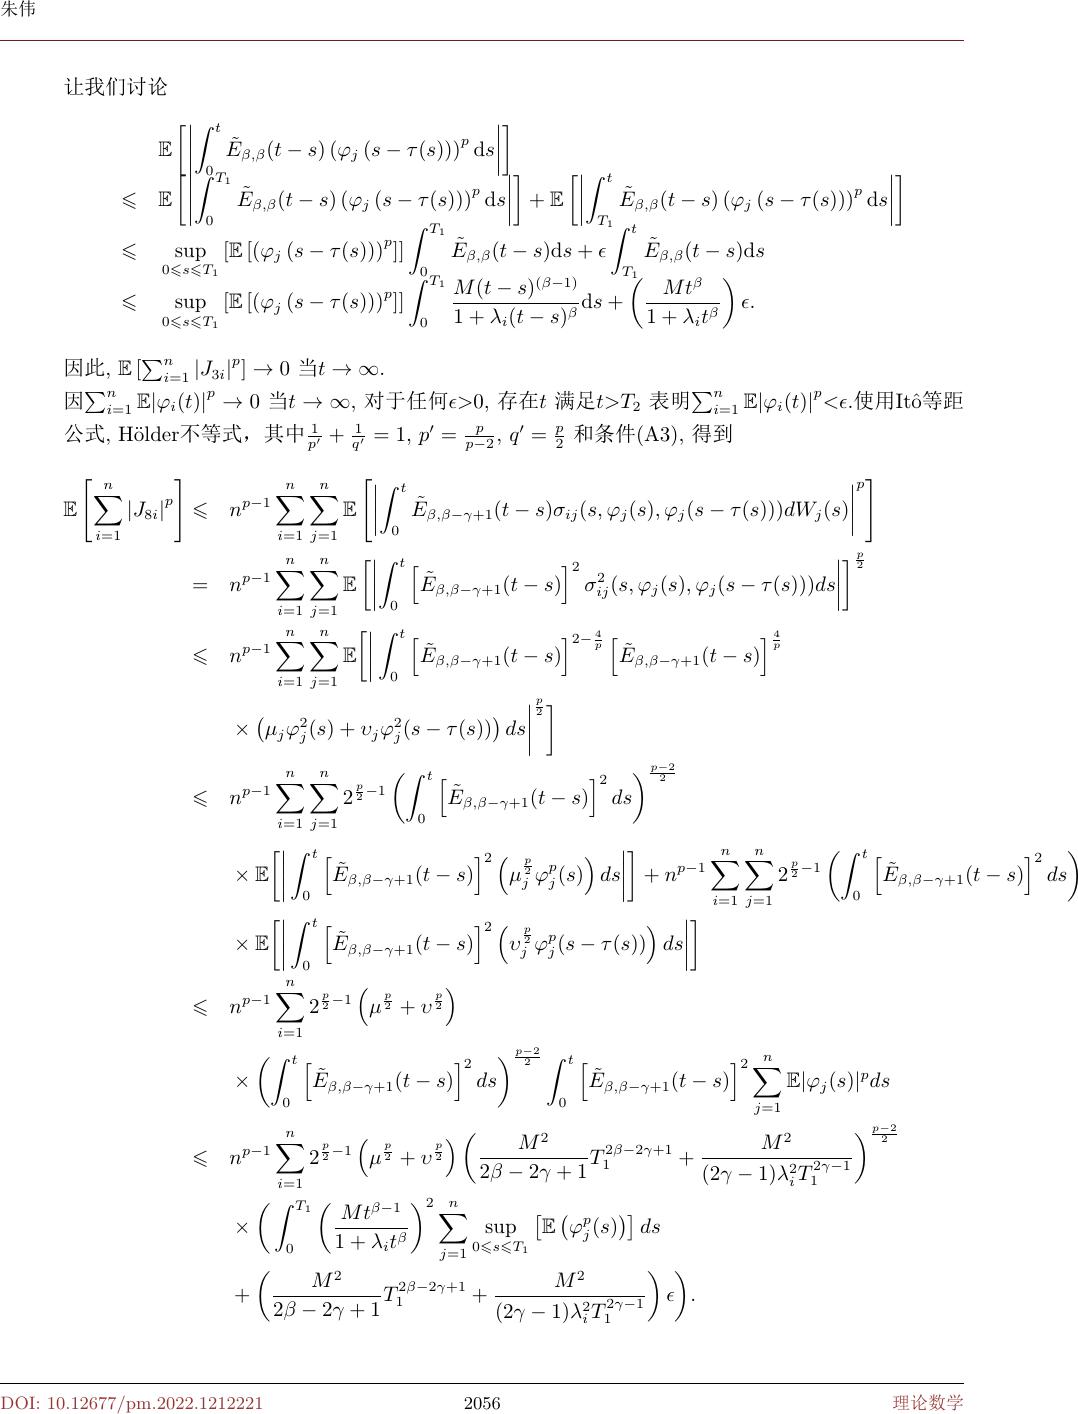 朱伟
让我们讨论
$\mathbb{E}\left[\left|\int_0^t \tilde{E}_{\beta,\beta}(t-s)\left(\varphi_j\left(s-\tau(s)\right)\right)^p \mathrm{d}s\right|\right]$
$\leqslant \mathbb{E}\left[\left|\int_0^{T_1} \tilde{E}_{\beta,\beta}(t-s)\left(\varphi_j\left(s-\tau(s)\right)\right)^p \mathrm{d}s\right|\right] + \mathbb{E}\left[\left|\int_{T_1}^t \tilde{E}_{\beta,\beta}(t-s)\left(\varphi_j\left(s-\tau(s)\right)\right)^p \mathrm{d}s\right|\right]$
$\leqslant \sup_{0\leqslant s\leqslant T_1}\left[\mathbb{E}\left[\left(\varphi_j\left(s-\tau(s)\right)\right)^p\right]\right] \int_0^{T_1} \tilde{E}_{\beta,\beta}(t-s)\mathrm{d}s + \epsilon \int_{T_1}^t \tilde{E}_{\beta,\beta}(t-s)\mathrm{d}s$
$\leqslant \sup_{0\leqslant s\leqslant T_1}\left[\mathbb{E}\left[\left(\varphi_j\left(s-\tau(s)\right)\right)^p\right]\right] \int_0^{T_1} \frac{M(t-s)^{(\beta-1)}}{1+\lambda_i(t-s)^\beta}\mathrm{d}s + \left(\frac{Mt^\beta}{1+\lambda_i t^\beta}\right)\epsilon.$
因此, $\mathbb{E}\left[\sum_{i=1}^n |J_{3i}|^p\right] \to 0$ 当$t \to \infty$.
因$\sum_{i=1}^n \mathbb{E}|\varphi_i(t)|^p \to 0$ 当$t \to \infty$, 对于任何$\epsilon$>0, 存在$t$ 满足$t$>$T_2$ 表明$\sum_{i=1}^n \mathbb{E}|\varphi_i(t)|^p$<$\epsilon$.使用Itô等距
公式, Hölder不等式，其中$\frac{1}{p'}+\frac{1}{q'}=1$, $p'=\frac{p}{p-2}$, $q'=\frac{p}{2}$ 和条件(A3), 得到
$\mathbb{E}\left[\sum_{i=1}^n |J_{8i}|^p\right] \leqslant n^{p-1}\sum_{i=1}^n\sum_{j=1}^n \mathbb{E}\left[\left|\int_0^t \tilde{E}_{\beta,\beta-\gamma+1}(t-s)\sigma_{ij}(s,\varphi_j(s),\varphi_j(s-\tau(s)))dW_j(s)\right|^p\right]$
$= n^{p-1}\sum_{i=1}^n\sum_{j=1}^n \mathbb{E}\left[\left|\int_0^t \left[\tilde{E}_{\beta,\beta-\gamma+1}(t-s)\right]^2 \sigma_{ij}^2(s,\varphi_j(s),\varphi_j(s-\tau(s)))ds\right|\right]^{\frac{p}{2}}$
$\leqslant n^{p-1}\sum_{i=1}^n\sum_{j=1}^n \mathbb{E}\left[\left|\int_0^t \left[\tilde{E}_{\beta,\beta-\gamma+1}(t-s)\right]^{2-\frac{4}{p}} \left[\tilde{E}_{\beta,\beta-\gamma+1}(t-s)\right]^{\frac{4}{p}}\right.\right.$
$\left.\left.\times \left(\mu_j\varphi_j^2(s)+\upsilon_j\varphi_j^2(s-\tau(s))\right)ds\right|^{\frac{p}{2}}\right]$
$\leqslant n^{p-1}\sum_{i=1}^n\sum_{j=1}^n 2^{\frac{p}{2}-1}\left(\int_0^t \left[\tilde{E}_{\beta,\beta-\gamma+1}(t-s)\right]^2 ds\right)^{\frac{p-2}{2}}$
$\times \mathbb{E}\left[\left|\int_0^t \left[\tilde{E}_{\beta,\beta-\gamma+1}(t-s)\right]^2 \left(\mu_j^{\frac{p}{2}}\varphi_j^p(s)\right)ds\right|\right] + n^{p-1}\sum_{i=1}^n\sum_{j=1}^n 2^{\frac{p}{2}-1}\left(\int_0^t \left[\tilde{E}_{\beta,\beta-\gamma+1}(t-s)\right]^2 ds\right)$
$\times \mathbb{E}\left[\left|\int_0^t \left[\tilde{E}_{\beta,\beta-\gamma+1}(t-s)\right]^2 \left(\upsilon_j^{\frac{p}{2}}\varphi_j^p(s-\tau(s))\right)ds\right|\right]$
$\leqslant n^{p-1}\sum_{i=1}^n 2^{\frac{p}{2}-1}\left(\mu^{\frac{p}{2}}+\upsilon^{\frac{p}{2}}\right)$
$\times \left(\int_0^t \left[\tilde{E}_{\beta,\beta-\gamma+1}(t-s)\right]^2 ds\right)^{\frac{p-2}{2}} \int_0^t \left[\tilde{E}_{\beta,\beta-\gamma+1}(t-s)\right]^2 \sum_{j=1}^n \mathbb{E}|\varphi_j(s)|^p ds$
$\leqslant n^{p-1}\sum_{i=1}^n 2^{\frac{p}{2}-1}\left(\mu^{\frac{p}{2}}+\upsilon^{\frac{p}{2}}\right)\left(\frac{M^2}{2\beta-2\gamma+1}T_1^{2\beta-2\gamma+1}+\frac{M^2}{(2\gamma-1)\lambda_i^2 T_1^{2\gamma-1}}\right)^{\frac{p-2}{2}}$
$\times \left(\int_0^{T_1}\left(\frac{Mt^{\beta-1}}{1+\lambda_i t^\beta}\right)^2 \sum_{j=1}^n \sup_{0\leqslant s\leqslant T_1}\left[\mathbb{E}\left(\varphi_j^p(s)\right)\right]ds\right.$
$\left.+\left(\frac{M^2}{2\beta-2\gamma+1}T_1^{2\beta-2\gamma+1}+\frac{M^2}{(2\gamma-1)\lambda_i^2 T_1^{2\gamma-1}}\right)\epsilon\right).$
DOI: 10.12677/pm.2022.1212221
2056
理论数学